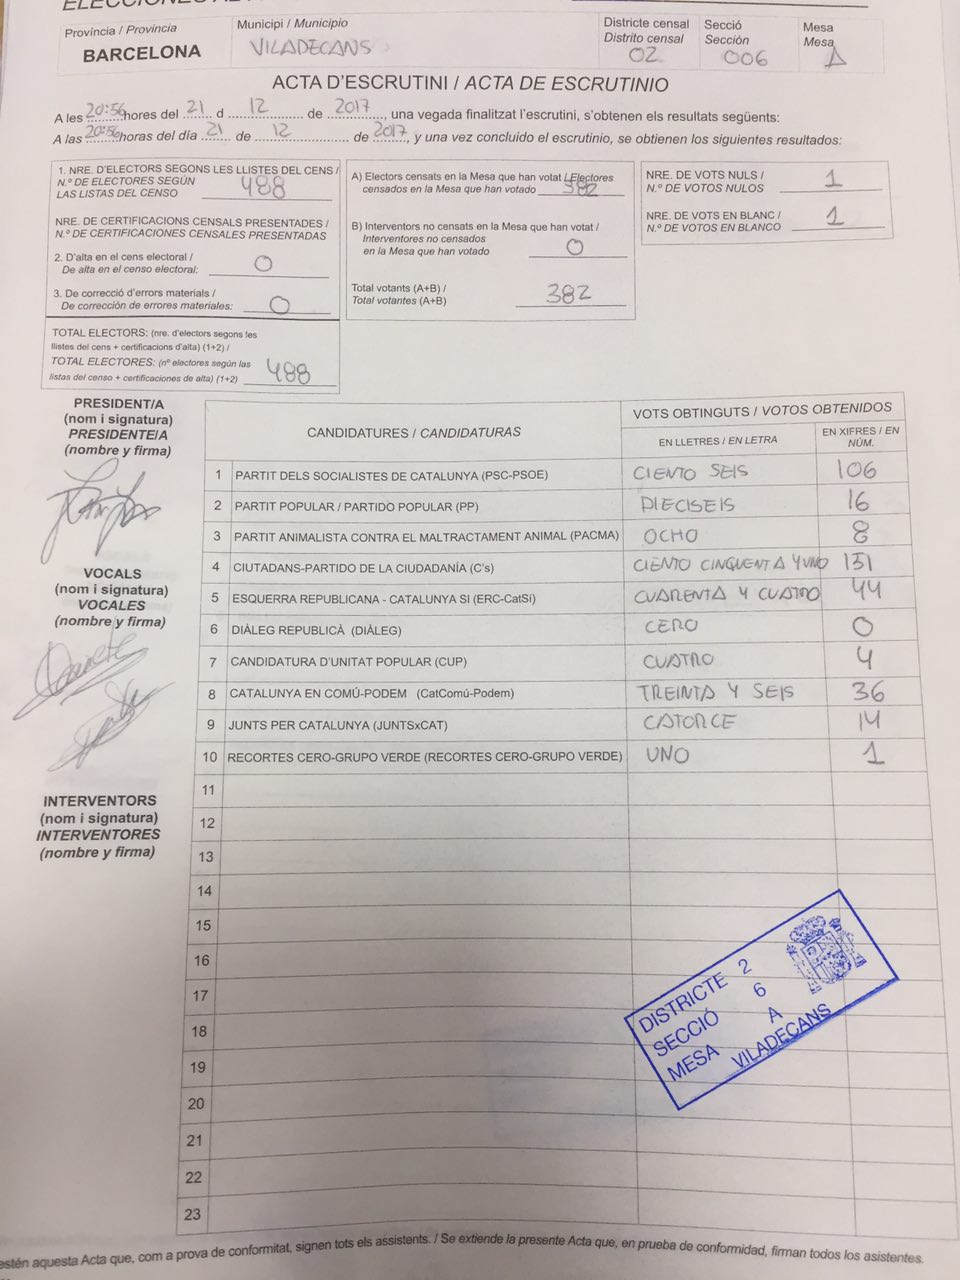 Província / Provincia
BARCELONA
Municipi / Municipio
VILADECANS
Districte censal
Distrito censal
02
Secció
Sección
006
Mesa
Mesa
A
ACTA D'ESCRUTINI / ACTA DE ESCRUTINIO
A les 20:56 hores del 21 d 12 de 2017, una vegada finalitzat l'escrutini, s'obtenen els resultats següents:
A las 20:56 horas del día 21 de 12 de 2017, y una vez concluido el escrutinio, se obtienen los siguientes resultados:
1. NRE. D'ELECTORS SEGONS LES LLISTES DEL CENS /
N.º DE ELECTORES SEGÚN
LAS LISTAS DEL CENSO 488
NRE. DE CERTIFICACIONS CENSALS PRESENTADES /
N.º DE CERTIFICACIONES CENSALES PRESENTADAS
2. D'alta en el cens electoral /
De alta en el censo electoral: 0
3. De correcció d'errors materials /
De corrección de errores materiales: 0
TOTAL ELECTORS: (nre. d'electors segons les
llistes del cens + certificacions d'alta) (1+2) /
TOTAL ELECTORES: (nº electores según las
listas del censo + certificaciones de alta) (1+2) 488
A) Electors censats en la Mesa que han votat / Electores
censados en la Mesa que han votado 382
B) Interventors no censats en la Mesa que han votat /
Interventores no censados
en la Mesa que han votado 0
Total votants (A+B) /
Total votantes (A+B) 382
NRE. DE VOTS NULS /
N.º DE VOTOS NULOS 1
NRE. DE VOTS EN BLANC /
N.º DE VOTOS EN BLANCO 1
PRESIDENT/A
(nom i signatura)
PRESIDENTE/A
(nombre y firma)
VOCALS
(nom i signatura)
VOCALES
(nombre y firma)
INTERVENTORS
(nom i signatura)
INTERVENTORES
(nombre y firma)
CANDIDATURES / CANDIDATURAS
VOTS OBTINGUTS / VOTOS OBTENIDOS
EN LLETRES / EN LETRA
EN XIFRES / EN NÚM.
1 PARTIT DELS SOCIALISTES DE CATALUNYA (PSC-PSOE) CIENTO SEIS 106
2 PARTIT POPULAR / PARTIDO POPULAR (PP) DIECISEIS 16
3 PARTIT ANIMALISTA CONTRA EL MALTRACTAMENT ANIMAL (PACMA) OCHO 8
4 CIUTADANS-PARTIDO DE LA CIUDADANÍA (C's) CIENTO CINQUENTA Y UNO 151
5 ESQUERRA REPUBLICANA - CATALUNYA SI (ERC-CatSí) CUARENTA Y CUATRO 44
6 DIÀLEG REPUBLICÀ (DIÀLEG) CERO 0
7 CANDIDATURA D'UNITAT POPULAR (CUP) CUATRO 4
8 CATALUNYA EN COMÚ-PODEM (CatComú-Podem) TREINTA Y SEIS 36
9 JUNTS PER CATALUNYA (JUNTSxCAT) CATORCE 14
10 RECORTES CERO-GRUPO VERDE (RECORTES CERO-GRUPO VERDE) UNO 1
11
12
13
14
15
16
17
18
19
20
21
22
23
DISTRICTE 2
SECCIÓ 6
MESA A
VILADECANS
estén aquesta Acta que, com a prova de conformitat, signen tots els assistents. / Se extiende la presente Acta que, en prueba de conformidad, firman todos los asistentes.